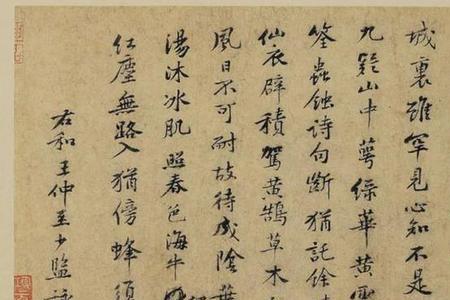 城裏雖罕見心知不是
九疑山中萼綠華黃雲
筌蟲蝕詩句斷猶託餘
仙衣襞積駕黃鵠草木
風日不可耐故待成陰葉
湯沐冰肌照春色海牛
紅塵無路入猶傍蜂須
右和王仲至少監詠